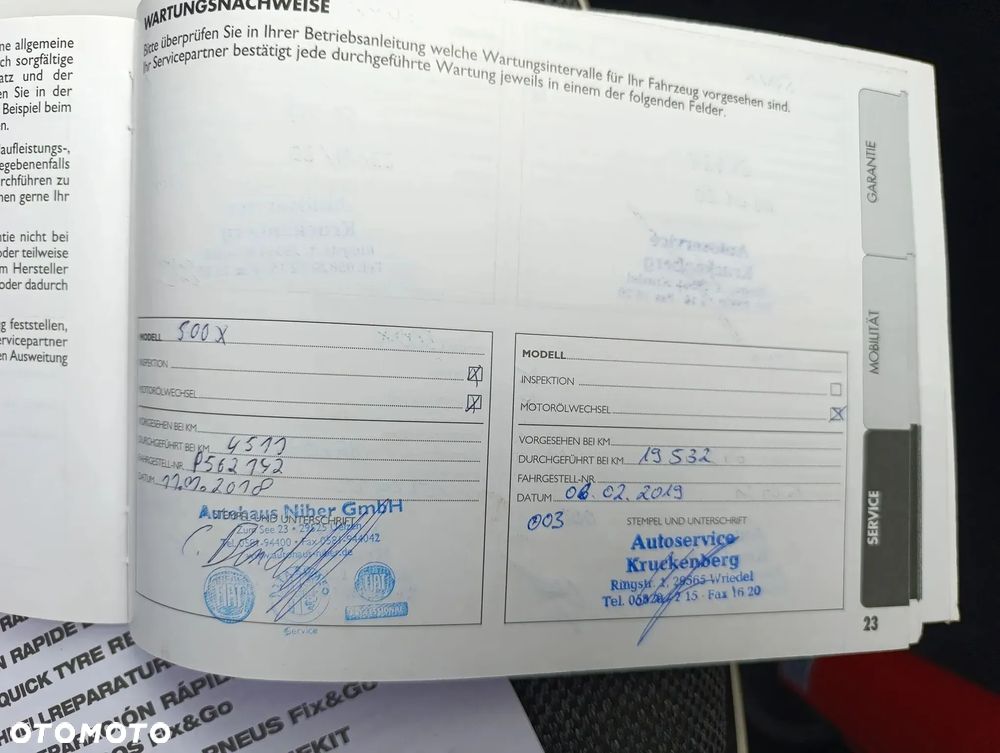 ne allgemeine
ch sorgfältige
atz und der
en Sie in der
Beispiel beim
n.
aufleistungs-,
egebenenfalls
rchführen zu
nen gerne Ihr
ntie nicht bei
oder teilweise
m Hersteller
oder dadurch
g feststellen,
ervicepartner
en Ausweitung
WARTUNGSNACHWEISE
Bitte überprüfen Sie in Ihrer Betriebsanleitung welche Wartungsintervalle für Ihr Fahrzeug vorgesehen sind.
Ihr Servicepartner bestätigt jede durchgeführte Wartung jeweils in einem der folgenden Felder.
MODELL 500 X
INSPEKTION
MOTORÖLWECHSEL
VORGESEHEN BEI KM
DURCHGEFÜHRT BEI KM 4511
FAHRGESTELL-NR. P562142
DATUM 2018
Autohaus Niber GmbH
STEMPEL UND UNTERSCHRIFT
Zum See 23 • 29525 Uelzen
Tel. 0581-94400 • Fax 0581-944042
FIAT
FIAT
PROFESSIONAL
Service
MODELL
INSPEKTION
MOTORÖLWECHSEL
VORGESEHEN BEI KM
DURCHGEFÜHRT BEI KM 19532
FAHRGESTELL-NR.
DATUM 02.2019
003
STEMPEL UND UNTERSCHRIFT
Autoservice
Kruckenberg
Ringstr. 1, 29565 Wriedel
15 · Fax 16 20
GARANTIE
MOBILITÄT
SERVICE
23
RAPIDE
QUICK TYRE RE
REPARATUR
PARACIÓN RÁPID
OS Fix&Go
PNEUS Fix&Go
KIT
OTOMOTO